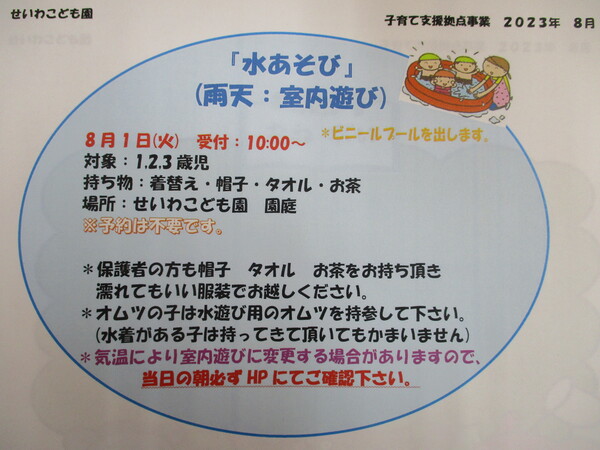 せいわこども園
子育て支援拠点事業 2023年 8月
「水あそび」
(雨天：室内遊び)
8月1日(火) 受付：10:00～
＊ビニールプールを出します。
対象：1.2.3歳児
持ち物：着替え・帽子・タオル・お茶
場所：せいわこども園 園庭
※予約は不要です。
＊保護者の方も帽子 タオル お茶をお持ち頂き
濡れてもいい服装でお越しください。
＊オムツの子は水遊び用のオムツを持参して下さい。
(水着がある子は持ってきて頂いてもかまいません)
＊気温により室内遊びに変更する場合がありますので、
当日の朝必ずHPにてご確認下さい。